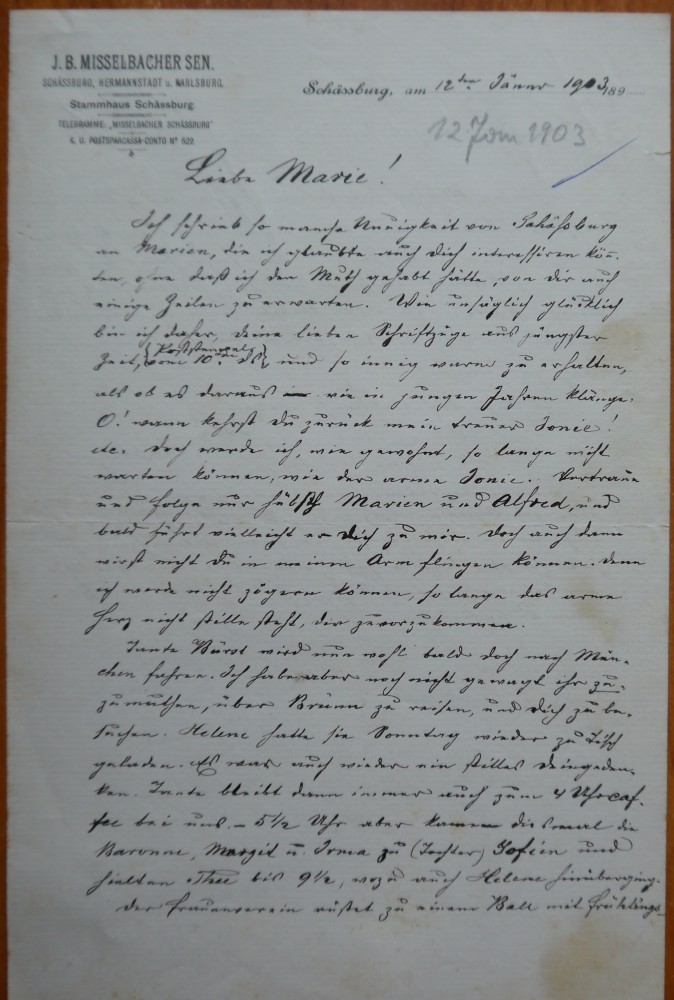 J. B. MISSELBACHER SEN.
SCHÄSSBURG, HERMANNSTADT u. KARLSBURG.
Stammhaus Schässburg
TELEGRAMME: „MISSELBACHER SCHÄSSBURG"
K. U. POSTSPARCASSA-CONTO No 522
Schässburg, am 12ten Jänner 1903 189
12 Jan 1903
Liebe Marie!
Ich schrieb so manche Neuigkeit von Schäßburg
an Marien, die ich glaubte auch Dich interessiren kön-
ten, ohne daß ich den Muth gehabt hätte, von Dir auch
einige Zeilen zu erwarten. Wie unsäglich glücklich
bin ich daher, Deine lieben Schriftzüge aus jüngster
Zeit, {Poststempel vom 10ten ds} und so innig warm zu erhalten,
als ob es daraus wie in jungen Jahren klänge:
O! wann kehrst Du zurück mein treuer Tonie!
etc. Doch werde ich, wie gewohnt, so lange nicht
warten können, wie der arme Tonie. Vertraue
und folge nur hübsch Marien und Alfred, und
bald führt vielleicht er Dich zu mir. Doch auch dann
wirst nicht Du in meinen Arm fliegen können. Denn
ich werde nicht zögern können, so lange das arme
Herz nicht stille steht, Dir zuvorzukommen.
Tante wird nun wohl bald doch nach Mün-
chen fahren. Ich habe aber noch nicht gewagt ihr zu-
zumuthen, über Brünn zu reisen, und Dich zu be-
suchen. Helene hatte sie Sonntag wieder zu Tisch
geladen. Es war auch wieder ein stilles Deingeden-
ken. Tante bleibt dann immer auch zum 4 Uhrcaf-
fee bei uns. – 5½ Uhr aber kamen diesmal die
Baronne, Margit u. Irma zu (Tochter) Josefen und
hielten Thee bis 9½, wozu auch Helene hinüberging.
Der Frauenverein rüstet zu einem Ball mit Frühlings-